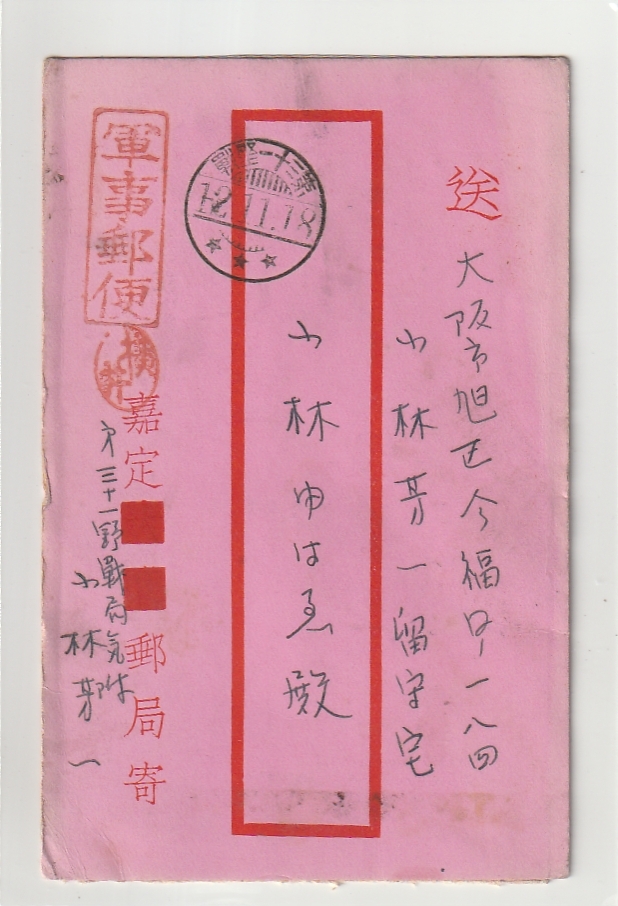 送
大阪市旭区今福町一八四
小林芳一留守宅
小林ゆはゑ殿
第三十一野戰
12.11.18
軍事郵便
横井
嘉定
郵局寄
第三十一野戰局気附
小林芳一